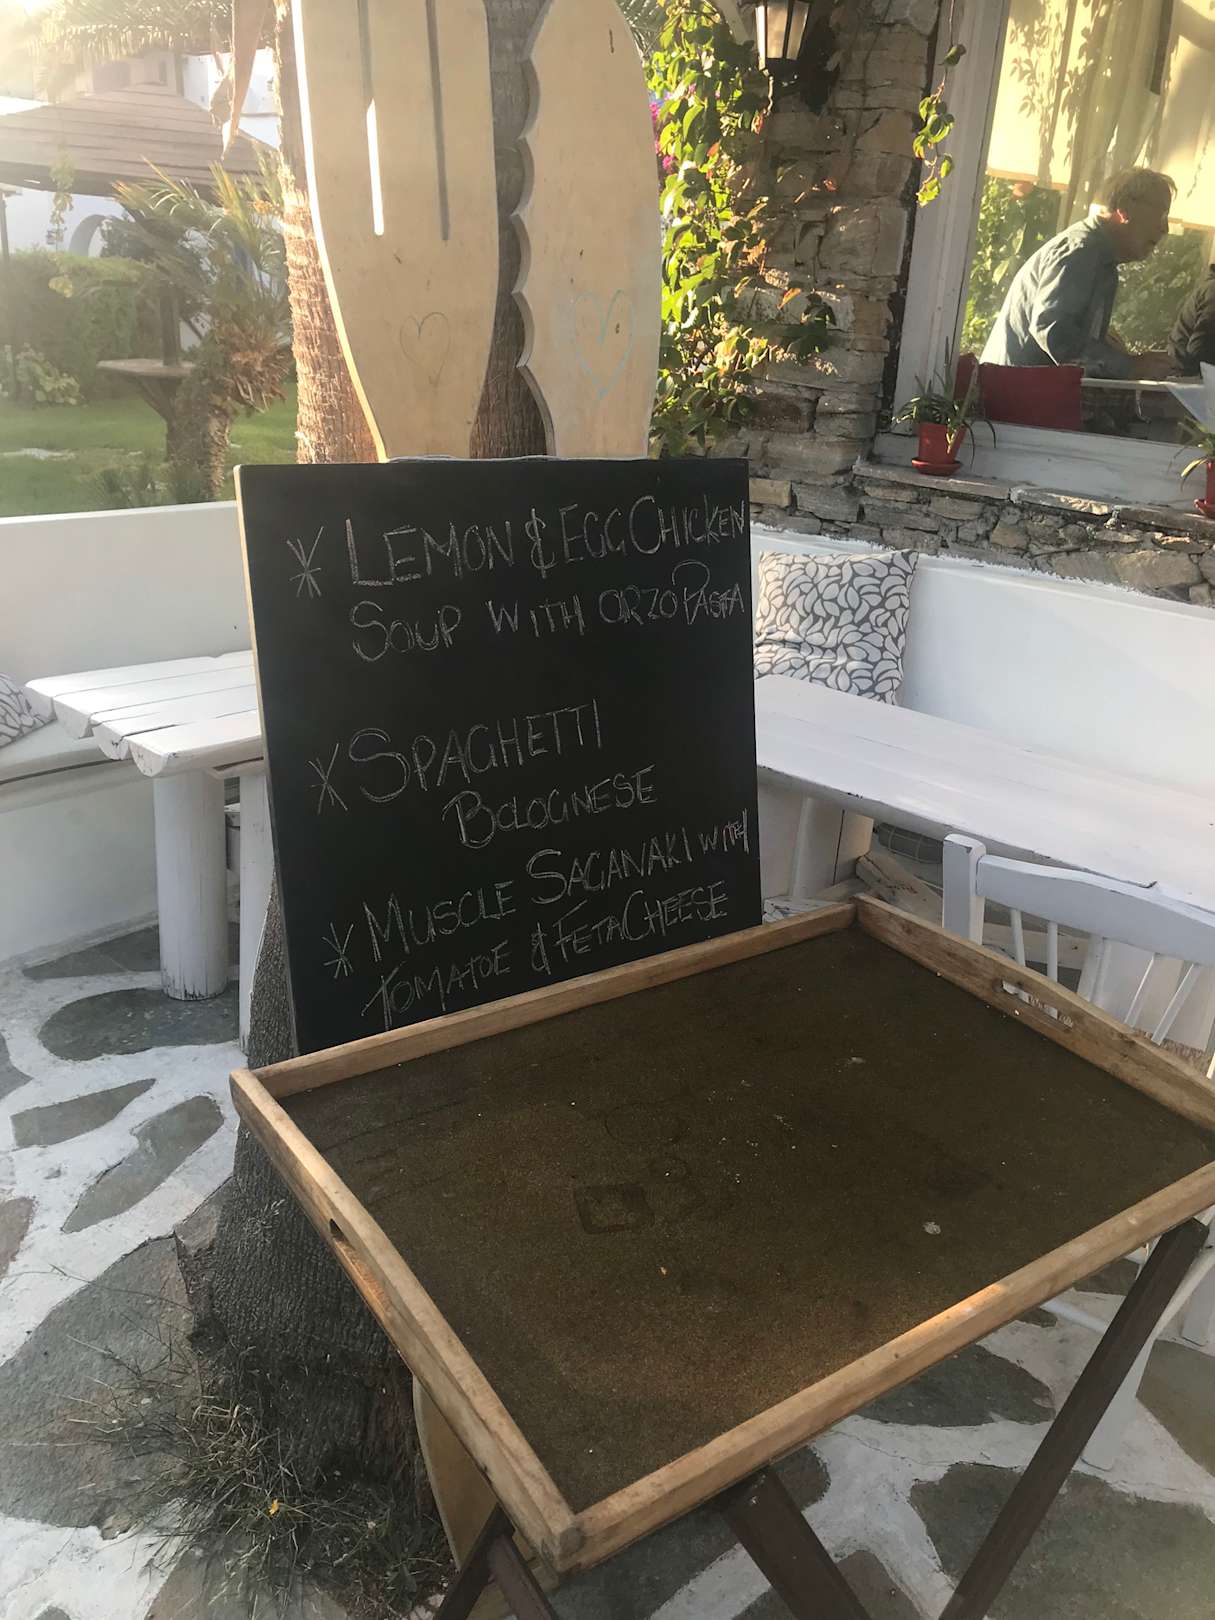 * LEMON & EGG CHICKEN
SOUP WITH ORZO PASTA
* SPAGHETTI
BOLOGNESE
* MUSCLE SAGANAKI WITH
TOMATOE & FETA CHEESE